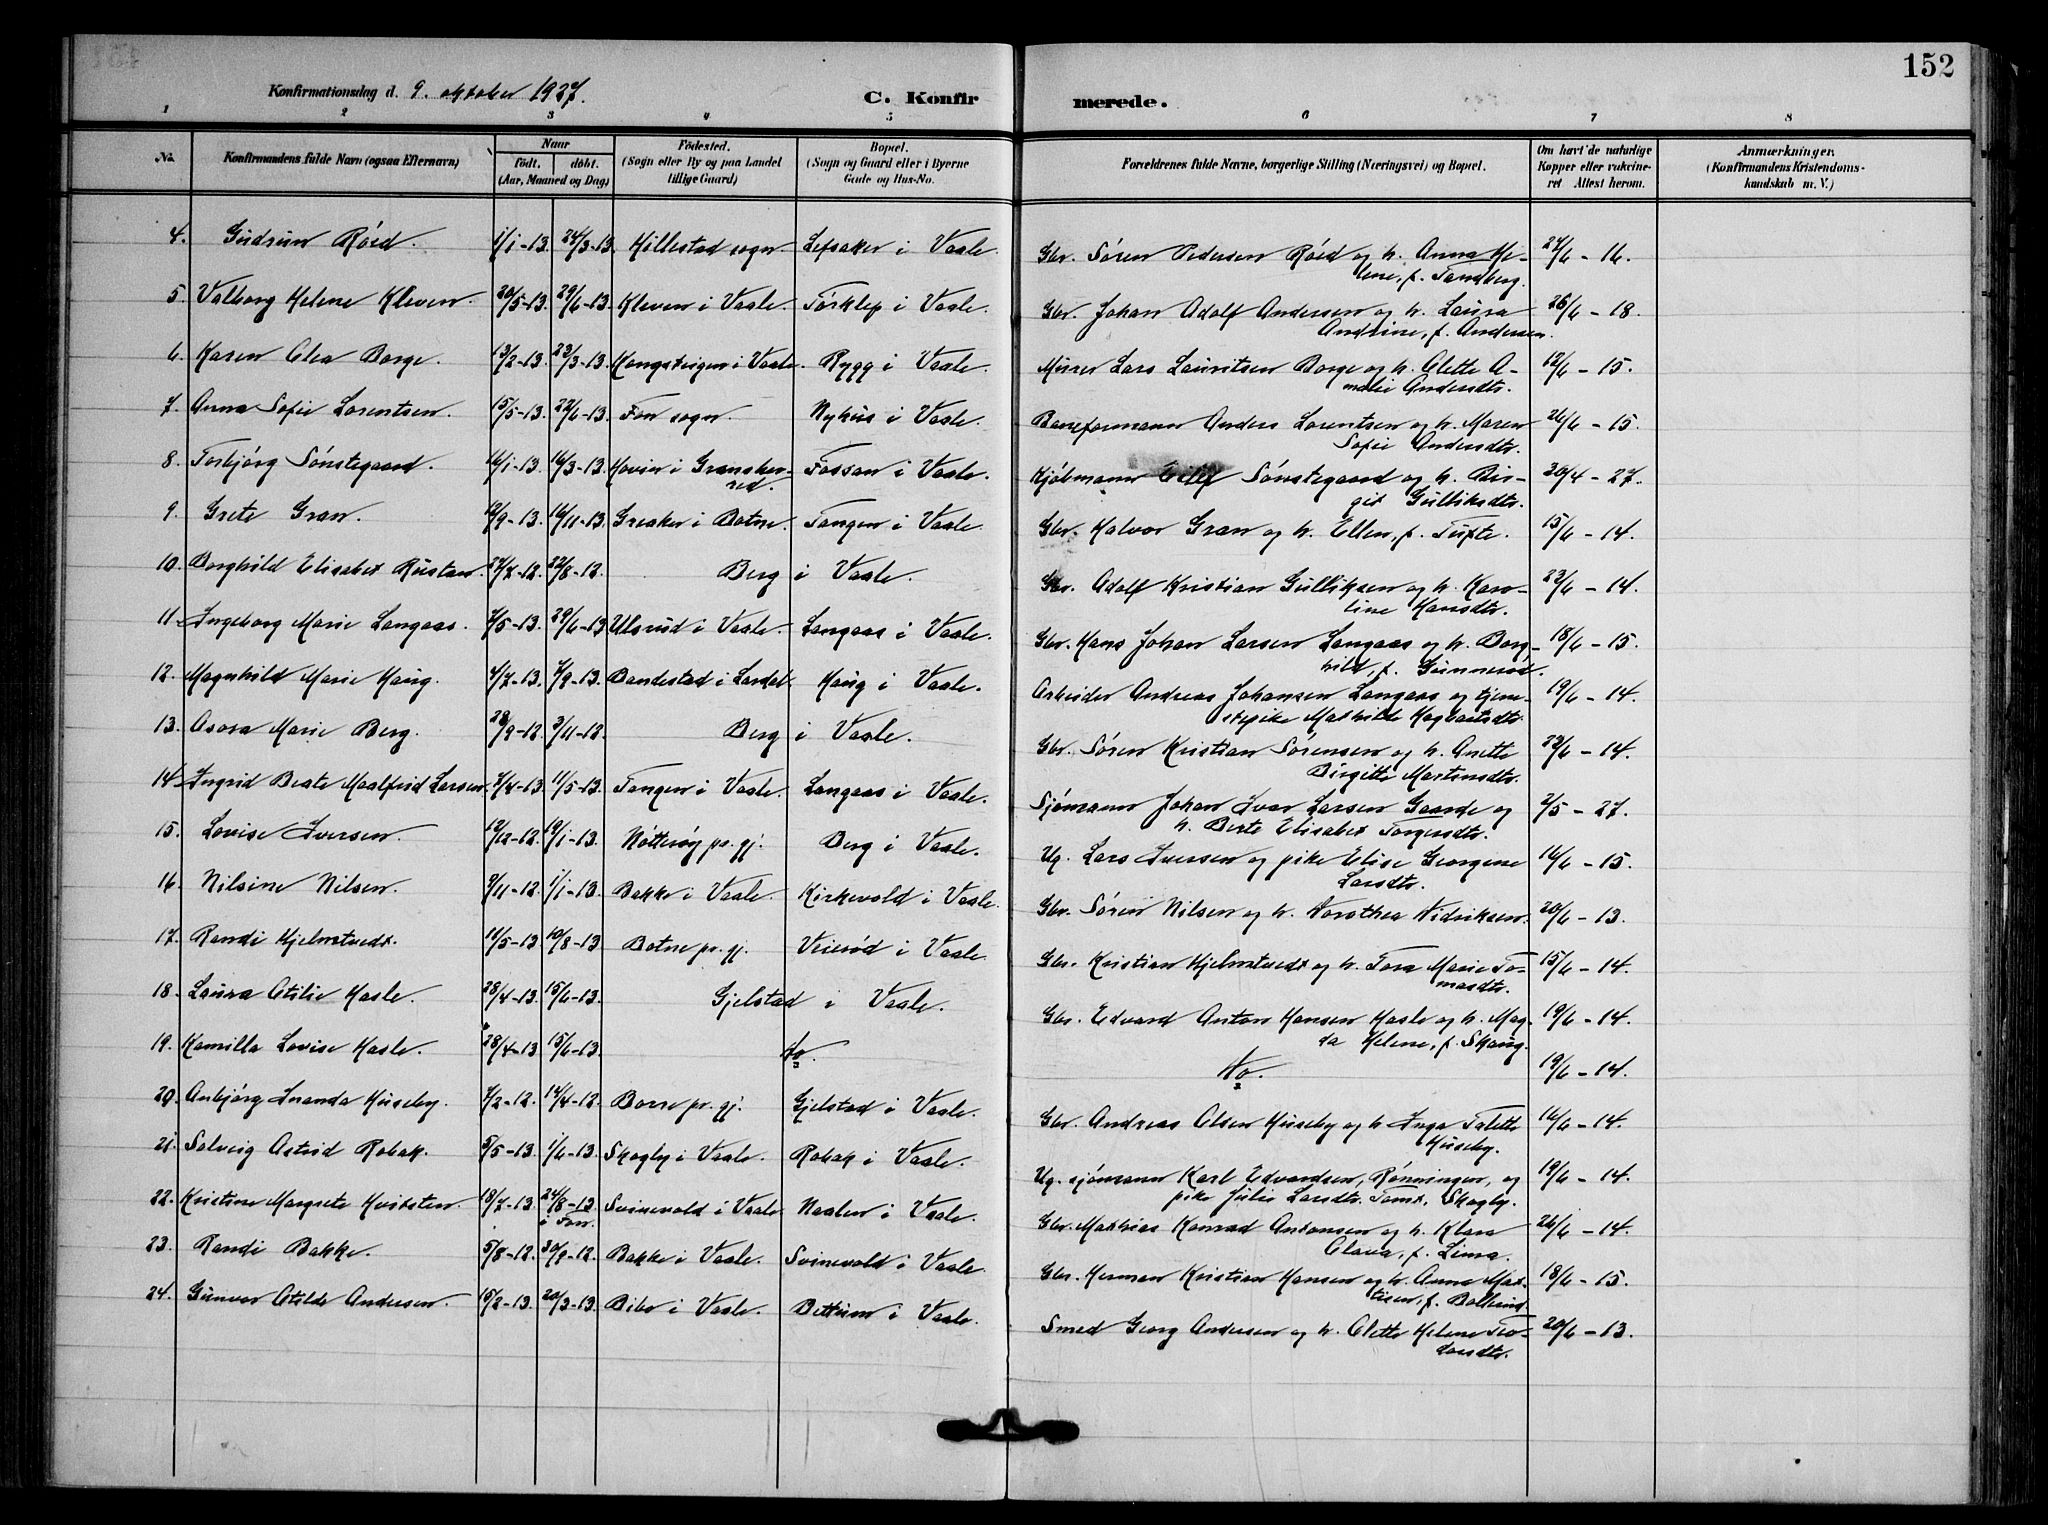 152
Konfirmationsdag d. 9. oktober 1927. C. Konfirmerede.
1 2 3 4 5 6 7 8
No. Konfirmandens fulde Navn (ogsaa Efternavn) Naar født, døbt. (Aar, Maaned og Dag) Fødested. (Sogn eller By og paa Landet tillige Gaard) Bopæl. (Sogn og Gaard eller i Byerne Gade og Hus-No. Forældrenes fulde Navne, borgerlige Stilling (Næringsvei) og Bopæl. Om havt de naturlige Kopper eller vakcineret Attest herom. Anmærkninger. (Konfirmandens Kristendomskundskab m. V.)
4. Gudrun Röed. 1/1-13. 24/3-13. Hillestad sogn. Lefsaker i Vaale. Gbr. Søren Pedersen Röed og h. Anna Helene, f. Tandberg. 27/6 - 16.
5. Valborg Helene Kleven. 20/5-13. 29/6-13. Kleven i Vaale. Törklep i Vaale. Gbr. Johan Adolf Andersen og h. Laura Andrine, f. Andersen. 26/6 - 18.
6. Karen Olea Borge. 13/2-13. 23/3-13. Hengsteigen i Vaale. Rygg i Vaale. Murer Lars Lauritsen Borge og h. Olette Amalie Andersdtr. 12/6 - 15.
7. Anna Sofie Lorentsen. 15/5-13. 22/6-13. Fon sogn. Nyhus i Vaale. Baneformann Anders Lorentsen og h. Maren Sofie Andersdtr. 26/6 - 15.
8. Torbjörg Sönstegaard. 16/1-13. 16/3-13. Hovin i Gransherred. Fossan i Vaale. Kjöbmann Eilef Sönstegaard og h. Birgit Gulliksdtr. 30/4 - 27.
9. Grete Gran. 12/9-13. 16/11-13. Greaker i Botne. Tangen i Vaale. Gbr. Halvor Gran og h. Ellen, f. Tufte. 15/6 - 14.
10. Borghild Elisabet Rustan. 27/7-12. 22/8-12. Berg i Vaale. Gbr. Adolf Kristian Gulliksen og h. Karoline Hansdtr. 23/6 - 14.
11. Ingeborg Marie Langaas. 7/5-13. 29/6-13. Ullsrud i Vaale. Langaas i Vaale. Gbr. Hans Johan Larsen Langaas og h. Borghild, f. Gunneröd. 18/6 - 15.
12. Magnhild Marie Haug. 4/7-13. 7/9-13. Bandestad i Lardal. Haug i Vaale. Arbeider Andreas Johansen Langaas og tjenestepike Mathilde Hagbartsdtr. 19/6 - 14.
13. Asora Marie Berg. 28/9-12. 3/11-12. Berg i Vaale. Gbr. Sören Kristian Sörensen og h. Anette Birgitte Martinsdtr. 23/6 - 14.
14. Ingrid Beate Maalfrid Larsen. 7/4-13. 11/5-13. Tangen i Vaale. Langaas i Vaale. Sjömann Johan Ivar Larsen Gaarde og h. Berte Elisabet Torgersdtr. 2/5 - 27.
15. Lovise Iversen. 12/12-12. 19/1-13. Nötteröy pr.gj. Berg i Vaale. Ug. Lars Iversen og pike Elise Georgine Larsdtr. 16/6 - 15.
16. Nilsine Nilsen. 9/11-12. 1/1-13. Bakke i Vaale. Kirkevold i Vaale. Gbr. Sören Nilsen og h. Dorothea Didriksen. 20/6 - 13.
17. Randi Hjelmtvedt. 11/5-13. 10/8-13. Botne pr.gj. Veieröd i Vaale. Gbr. Kristian Hjelmtvedt og h. Tora Marie Tomasdtr. 15/6 - 14.
18. Laura Otilie Hasle. 28/4-13. 15/6-13. Gjelstad i Vaale. Gbr. Edvard Anton Hansen Hasle og h. Magda Helene, f. Skaug. 19/6 - 14.
19. Kamilla Lovise Hasle. 28/4-13. 15/6-13. Do. Do. 19/6 - 14.
20. Anbjörg Inanda Huseby. 7/2-12. 14/4-12. Borre pr.gj. Gjelstad i Vaale. Gbr. Andreas Olsen Huseby og h Inga Talette Huseby. 16/6 - 14.
21. Solveig Astrid Robak. 5/5-13. 1/6-13. Skogby i Vaale. Robak i Vaale. Ug. sjömann Karl Edvardsen, Rönningen, og pike Julie Larsdtr. Tomt, Skogby. 19/6 - 14.
22. Kristine Margrete Hvitsten. 18/7-13. 24/8-13 i Fon. Svinevold i Vaale. Naalen i Vaale. Gbr. Mathias Konrad Antonsen og h. Klara Olava, f. Linna. 26/6 - 14.
23. Randi Bakke. 5/8-12. 30/9-12. Bakke i Vaale. Svinevold i Vaale. Gbr. Herman Kristian Hansen og h. Anna Matisen, f. Bollerud. 18/6 - 15.
24. Gunvor Otilde Andersen. 15/2-13. 20/3-13. Bibo i Vaale. Bettum i Vaale. Smed Georg Andersen og h. Olette Helene Teodorsdtr. 20/6 - 13.